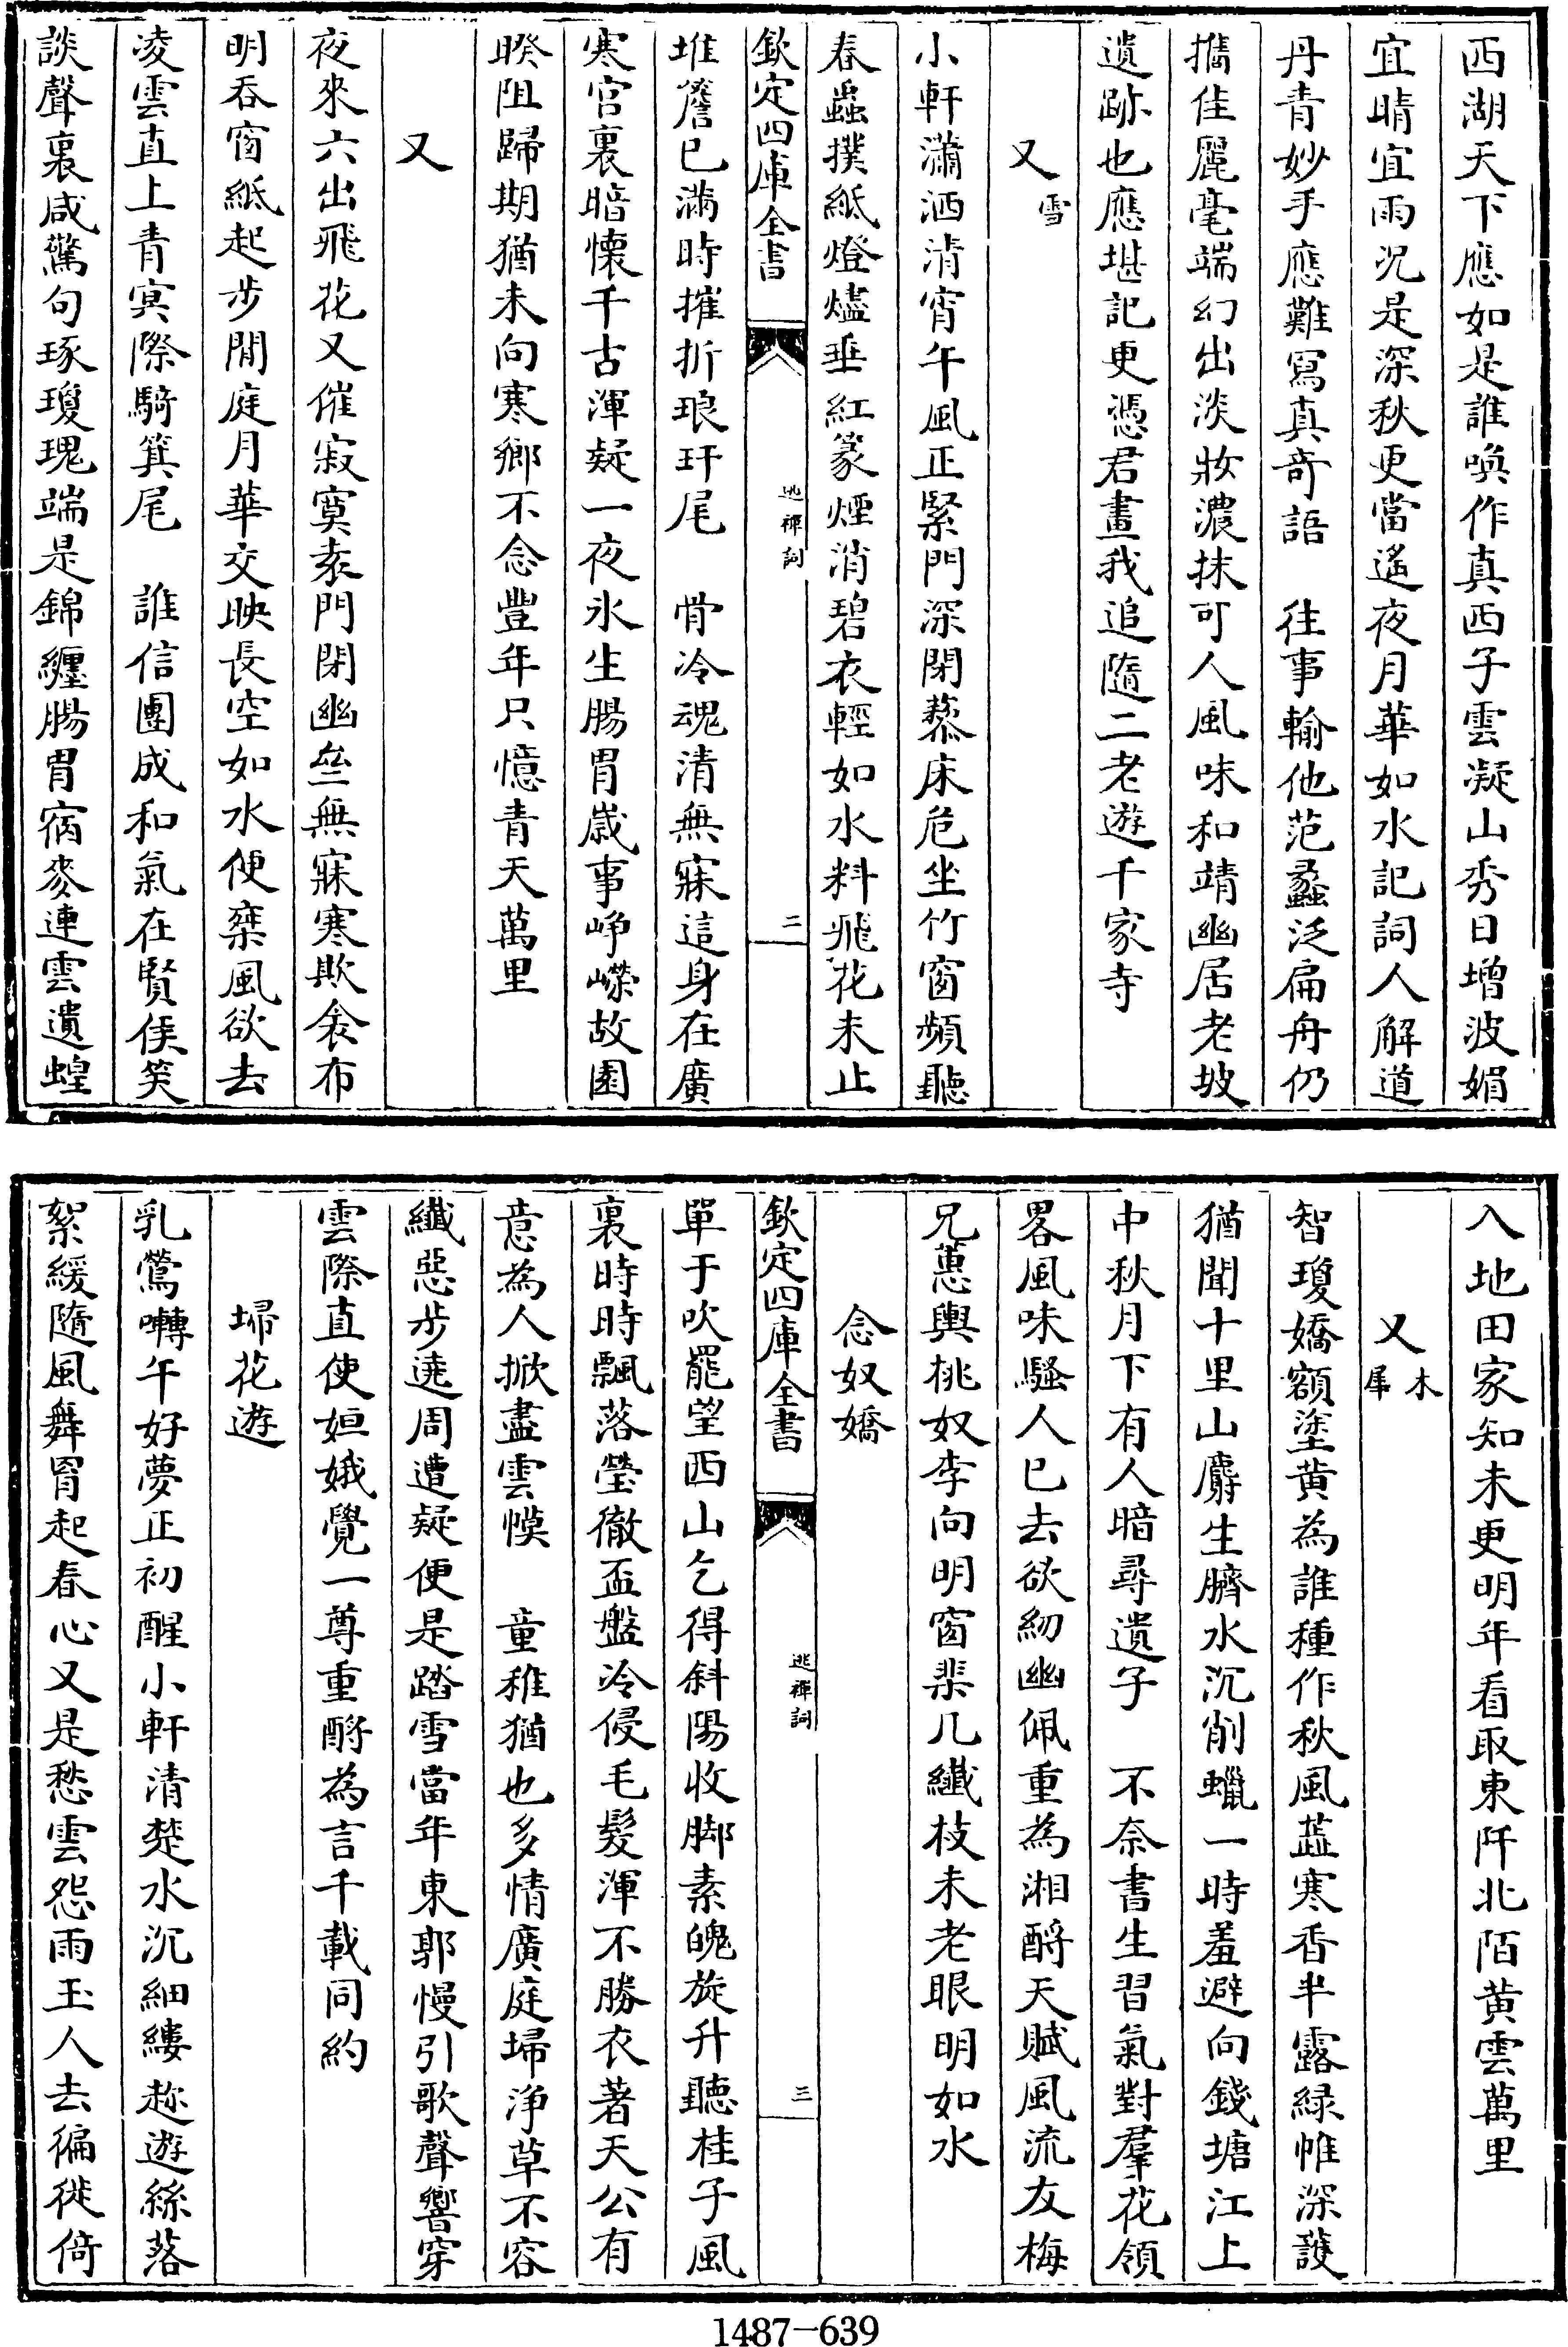 西湖天下應如是誰喚作真西子雲凝山秀日增波媚
宜晴宜雨況是深秋更當遙夜月華如水記詞人解道
丹青妙手應難寫真奇語　往事輸他范蠡泛扁舟仍
攜佳麗毫端幻出淡妝濃抹可人風味和靖幽居老坡
遺跡也應堪記更憑君畫我追隨二老遊千家寺
又雪
小軒瀟洒清宵午風正緊門深閉藜床危坐竹窗頻聽
春蟲撲紙燈燼垂紅篆煙消碧衣輕如水料飛花未止
欽定四庫全書
逃禪詞
二
堆簷已滿時摧折琅玕尾　骨冷魂清無寐這身在廣
寒宮裏暗懷千古渾疑一夜氷生腸胃歲事崢嶸故園
睽阻歸期猶未向寒鄉不念豐年只憶青天萬里
又
夜來六出飛花又催寂寞袁門閉幽壑無寐寒欺衾布
明吞窗紙起步閒庭月華交映長空如水便乘風欲去
凌雲直上青冥際騎箕尾　誰信團成和氣在賢侯笑
談聲裏咸驚句琢瓊瑰端是錦纏腸胃宿麥連雲遺蝗
入地田家知未更明年看取東阡北陌黃雲萬里
又木犀
智瓊嬌額塗黃為誰種作秋風蘂寒香半露綠帷深護
猶聞十里山麝生臍水沉削蠟一時羞避向錢塘江上
中秋月下有人暗尋遺子　不奈書生習氣對羣花領
畧風味騷人已去欲紉幽佩重為湘酹天賦風流友梅
兄蕙輿桃奴李向明窗棐几纖枝未老眼明如水
念奴嬌
欽定四庫全書
逃禪詞
三
單于吹罷望西山乞得斜陽收脚素魄旋升聽桂子風
裏時時飄落瑩徹盃盤冷侵毛髮渾不勝衣著天公有
意為人掀盡雲幙　童稚猶也多情廣庭埽淨草不容
纖惡步遶周遭疑便是踏雪當年東郭慢引歌聲響穿
雲際直使姮娥覺一尊重酹為言千載同約
埽花遊
乳鶯囀午好夢正初醒小軒清楚水沉細縷趂遊絲落
絮緩隨風舞胃起春心又是愁雲怨雨玉人去徧徙倚
1487—639